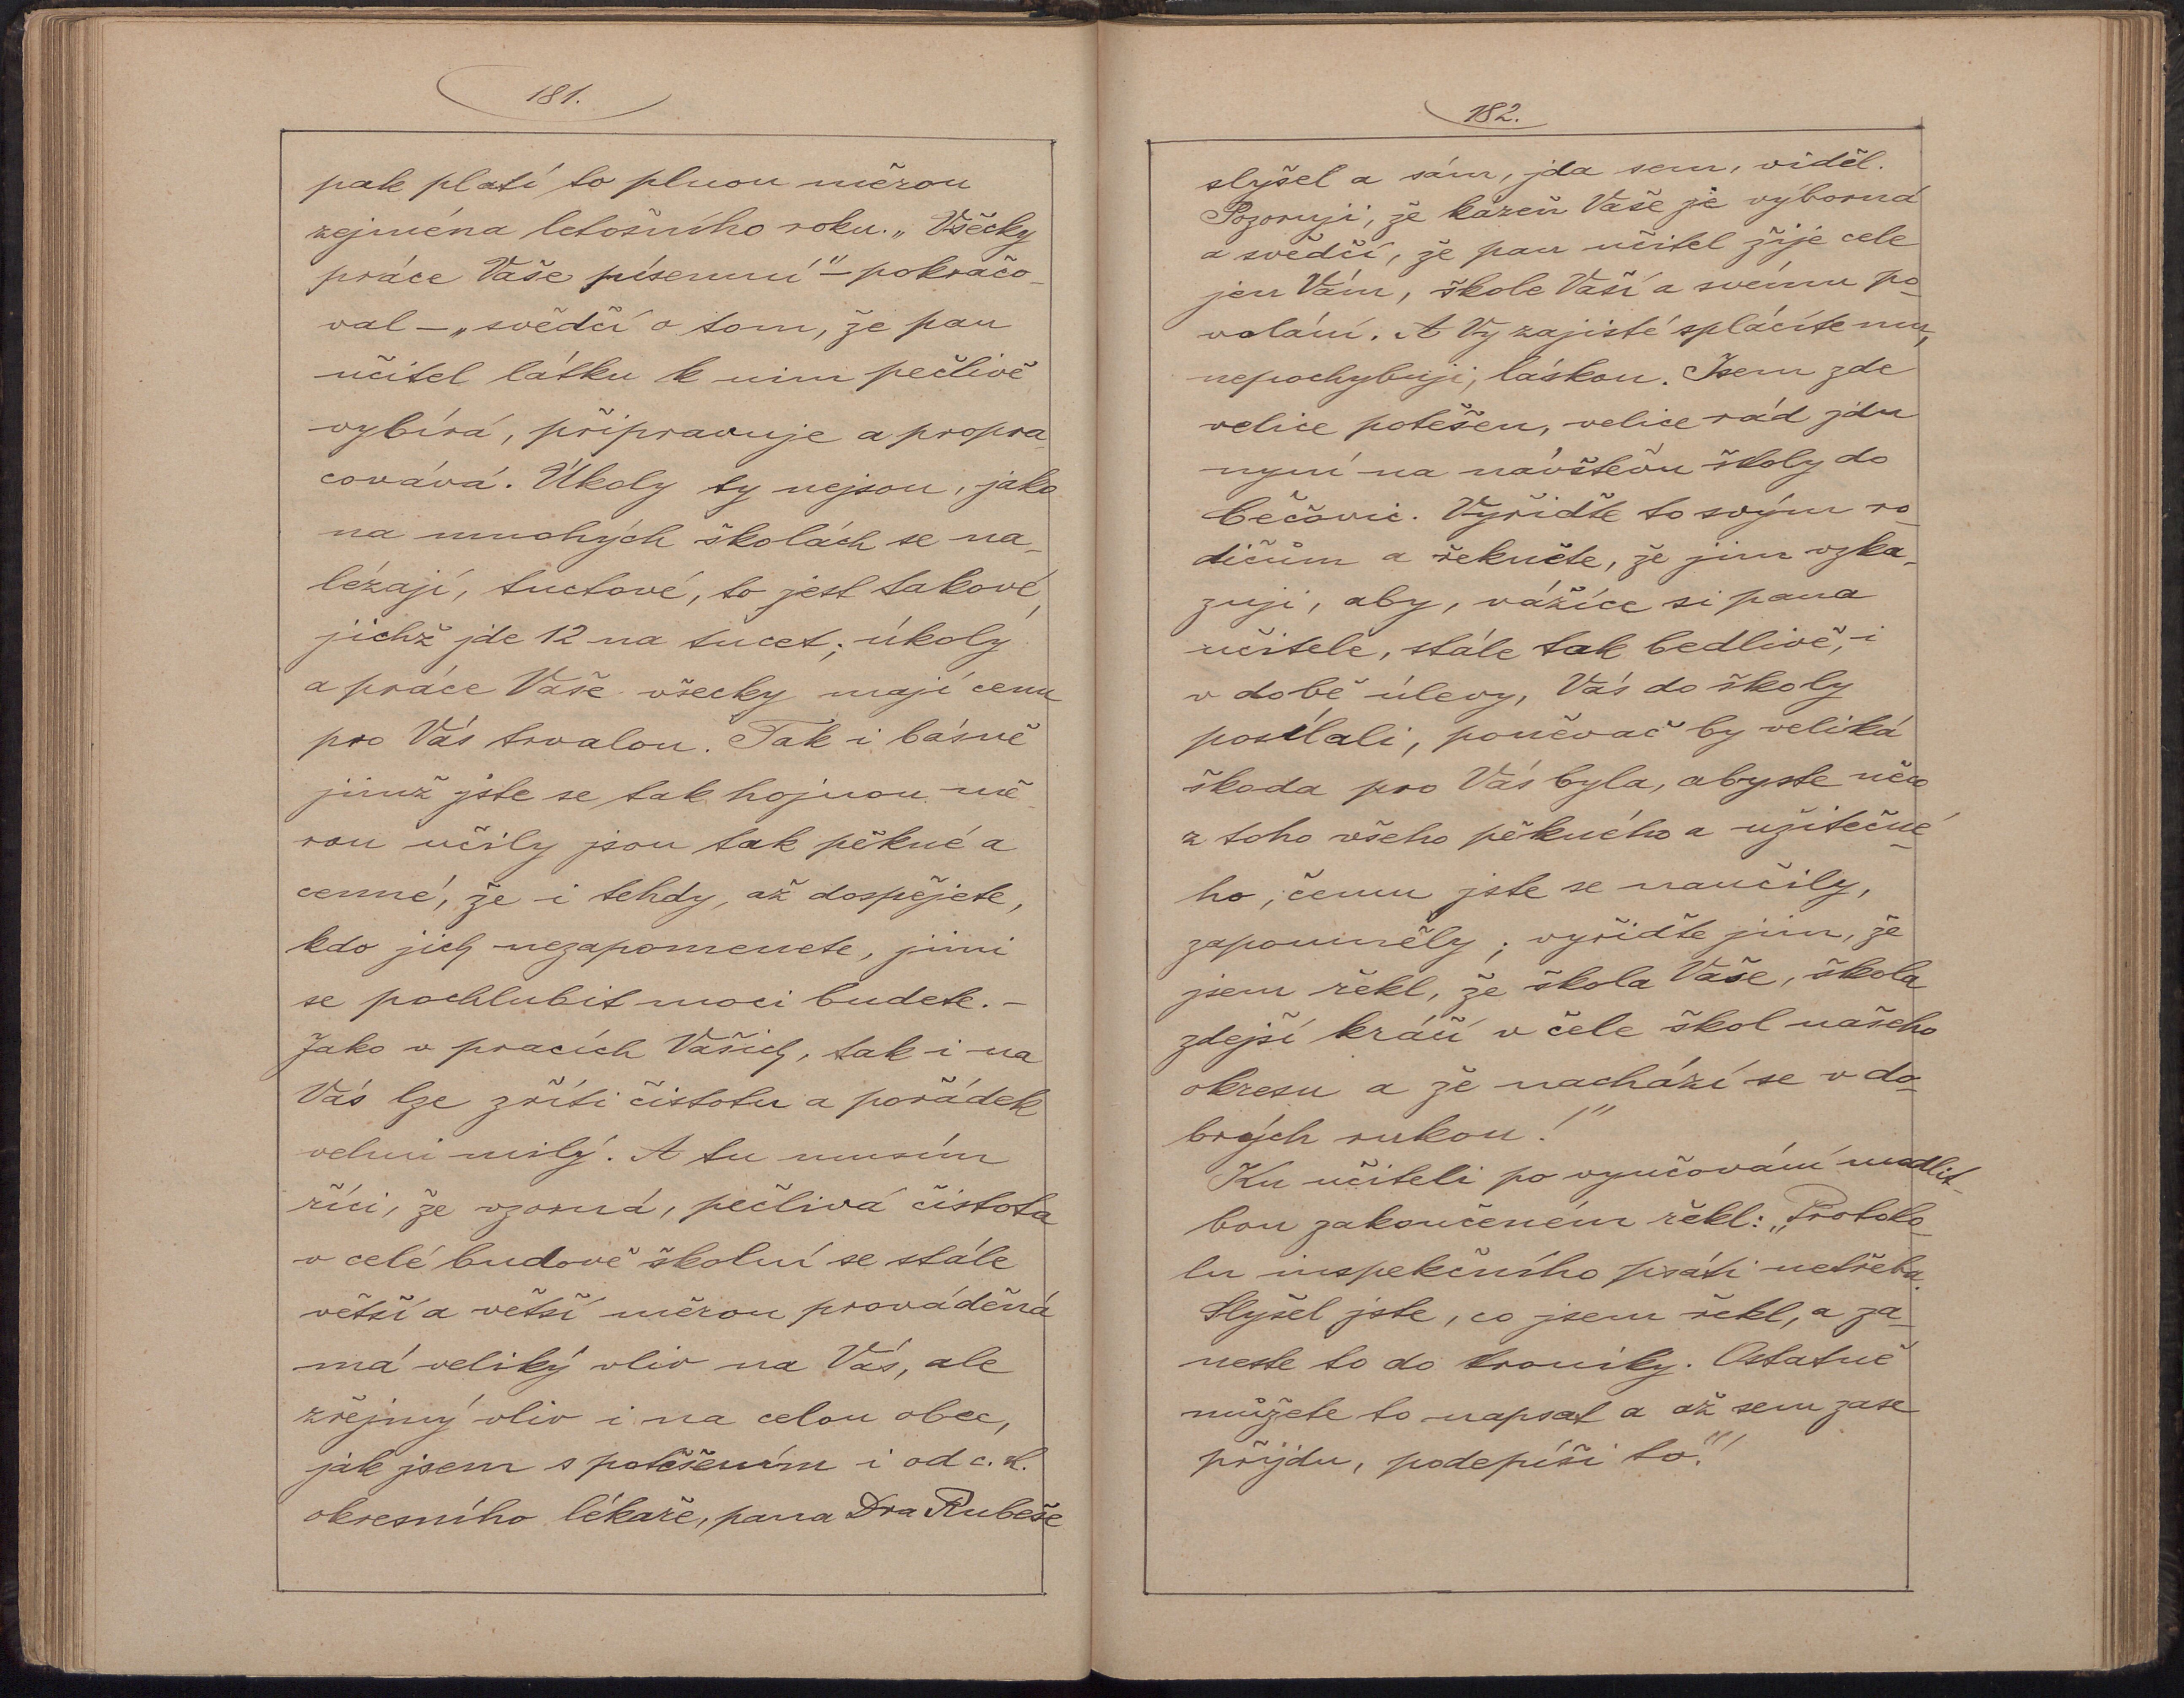 181.
pak platí to plnou měrou
zejména letošního roku. „Všecky
práce Vaše písemní" – pokračo-
val – „svědčí o tom, že pan
učitel látku k nim pečlivě
vybírá, připravuje a propra-
covává. Úkoly ty nejsou, jako
na mnohých školách se na-
lézají, tuctové, to jest takové,
jichž jde 12 na tucet; úkoly
a práce Vaše všecky mají cenu
pro Vás trvalou. Tak i básně
jimž jste se tak hojnou mě-
rou učily jsou tak pěkné a
cenné, že i tehdy, až dospějete,
kdo jich nezapomenete, jimi
se pochlubit moci budete. –
Jako v pracích Vašich, tak i na
Vás lze zříti čistotu a pořádek
velmi milý. A tu musím
říci, že vzorná, pečlivá čistota
v celé budově školní se stále
větší a větší měrou prováděná
má veliký vliv na Vás, ale
zřejmý vliv i na celou obec,
jak jsem s potěšením i od c. k.
okresního lékaře, pana Dra Rubeše
182.
slyšel a sám, jda sem, viděl.
Pozoruji, že kázeň Vaše je výborná
a svědčí, že pan učitel žije cele
jen Vám, škole Vaší a svému po-
volání. A Vy zajisté splácíte mu,
nepochybuji, láskou. Jsem zde
velice potěšen, velice rád jdu
nyní na návštěvu školy do
Bečovic. Vyřiďte to svým ro-
dičům a řekněte, že jim vzka-
zuji, aby, vážíce si pana
učitele, stále tak bedlivě, i
v době úlevy, Vás do školy
posílali, poněvač by veliká
škoda pro Vás byla, abyste něco
z toho všeho pěkného a užitečné-
ho, čemu jste se naučily,
zapomněly; vyřiďte jim, že
jsem řekl, že škola Vaše, škola
zdejší kráčí v čele škol našeho
okresu a že nachází se v do-
brých rukou!"
Ku učiteli po vyučování modlit-
bou zakončeném řekl: „Protoko-
lu inspekčního psáti netřeba.
Slyšel jste, co jsem řekl, a za-
neste to do kroniky. Ostatně
můžete to napsat a až sem zase
přijdu, podepíši to."